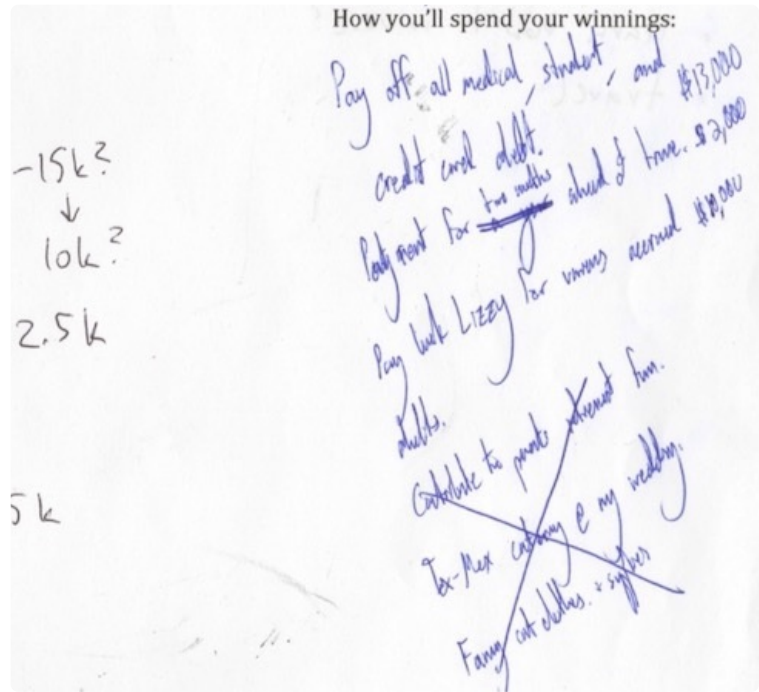 How you'll spend your winnings:
Pay off all medical, student, and $13,000
credit card debt.
Payment for two months ahead of time. $2,000
Pay back Lizzy for various accrued $10,000
debts.
Contribute to parents retirement fun.
Tex-Mex catering @ my wedding.
Fancy cat clothes. +
-15k?
↓
10k?
2.5k
5k